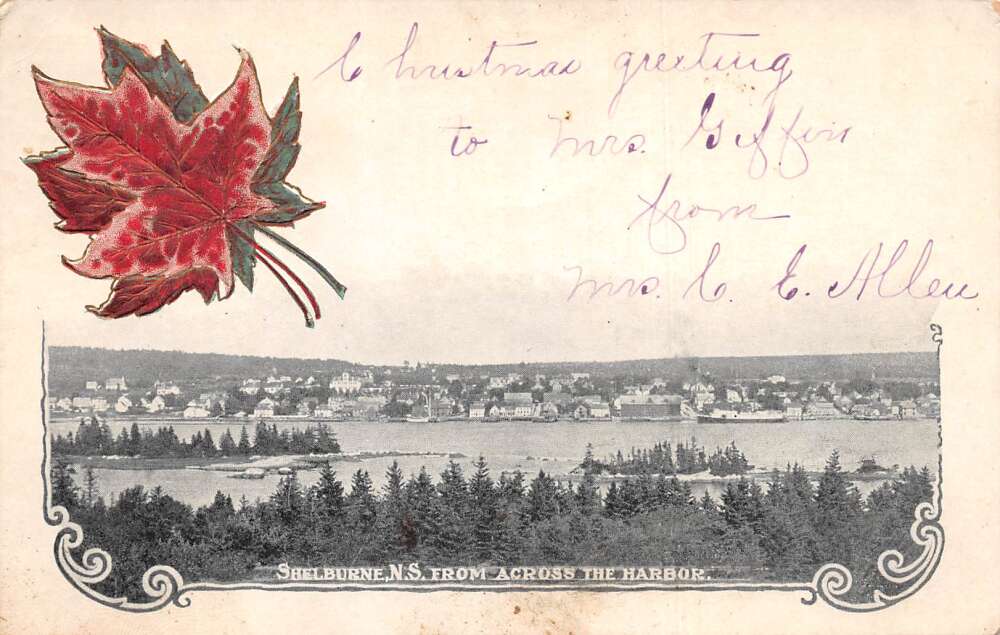 Christmas greeting
to Mrs. Giffin
from
Mrs. C. E. Allen
SHELBURNE, N.S. FROM ACROSS THE HARBOR.